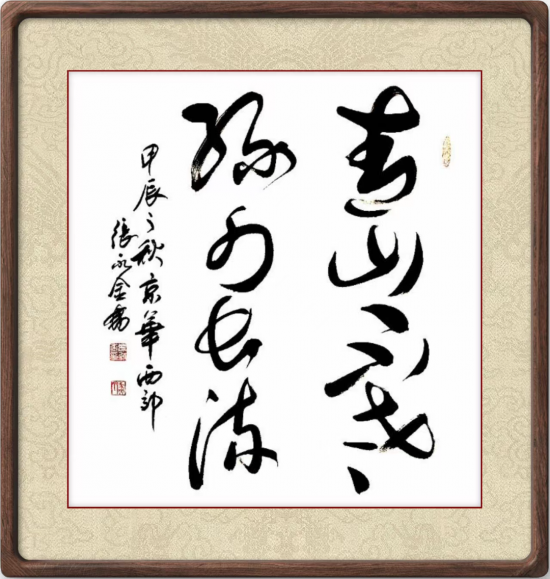 青山不
绿水长流
甲辰之秋京華西郊
張永金書